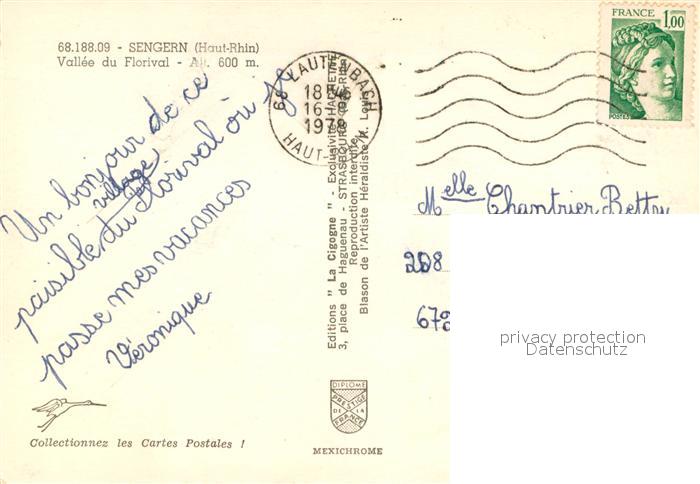 68.188.09 - SENGERN (Haut-Rhin)
Vallée du Florival - Alt. 600 m.
Un bonjour de ce
village
paisible du Florival où je
passe mes vacances
Véronique
Collectionnez les Cartes Postales !
Editions " La Cigogne " - Exclusivité HACHETTE
3, place de Haguenau - STRASBOURG
Reproduction interdite
Blason de l'Artiste Héraldiste R. Louis
DIPLOME
PRESTIGE
DE LA
FRANCE
MEXICHROME
68 LAUTENBACH
18H
16-
1978
HAUT-RHIN
FRANCE
1,00
POSTES
Melle Chantrier Betty
208
672
privacy protection
Datenschutz